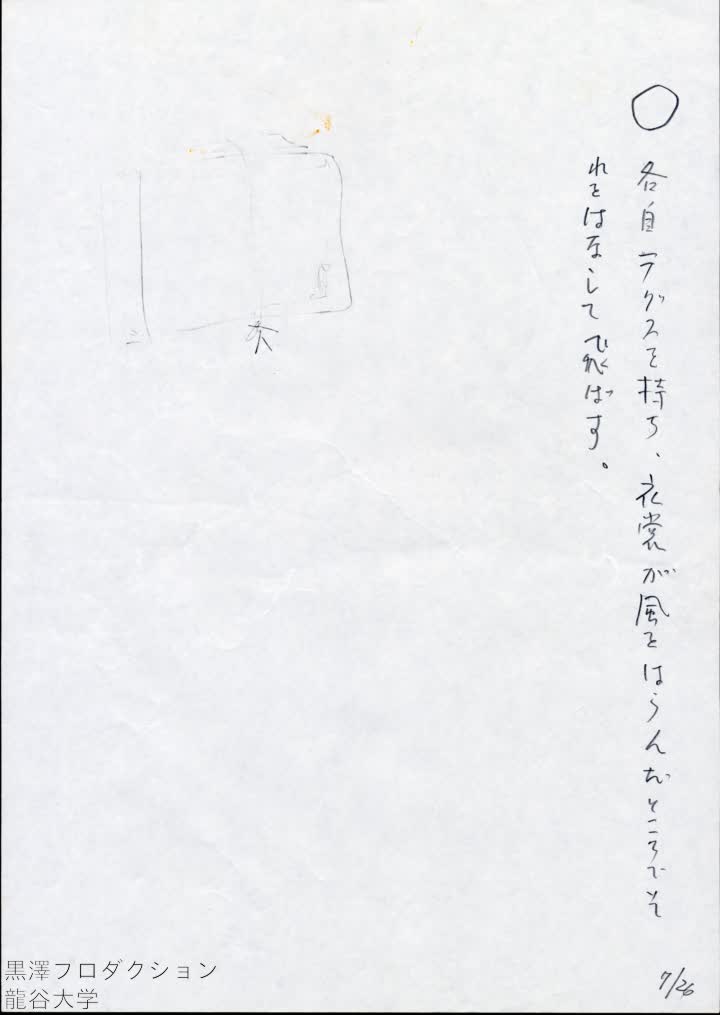 ○ 各自ラグスを持ち、衣裳が風をはらんだところでそ
れをはなして飛ばす。
7/26
黒澤プロダクション
龍谷大学